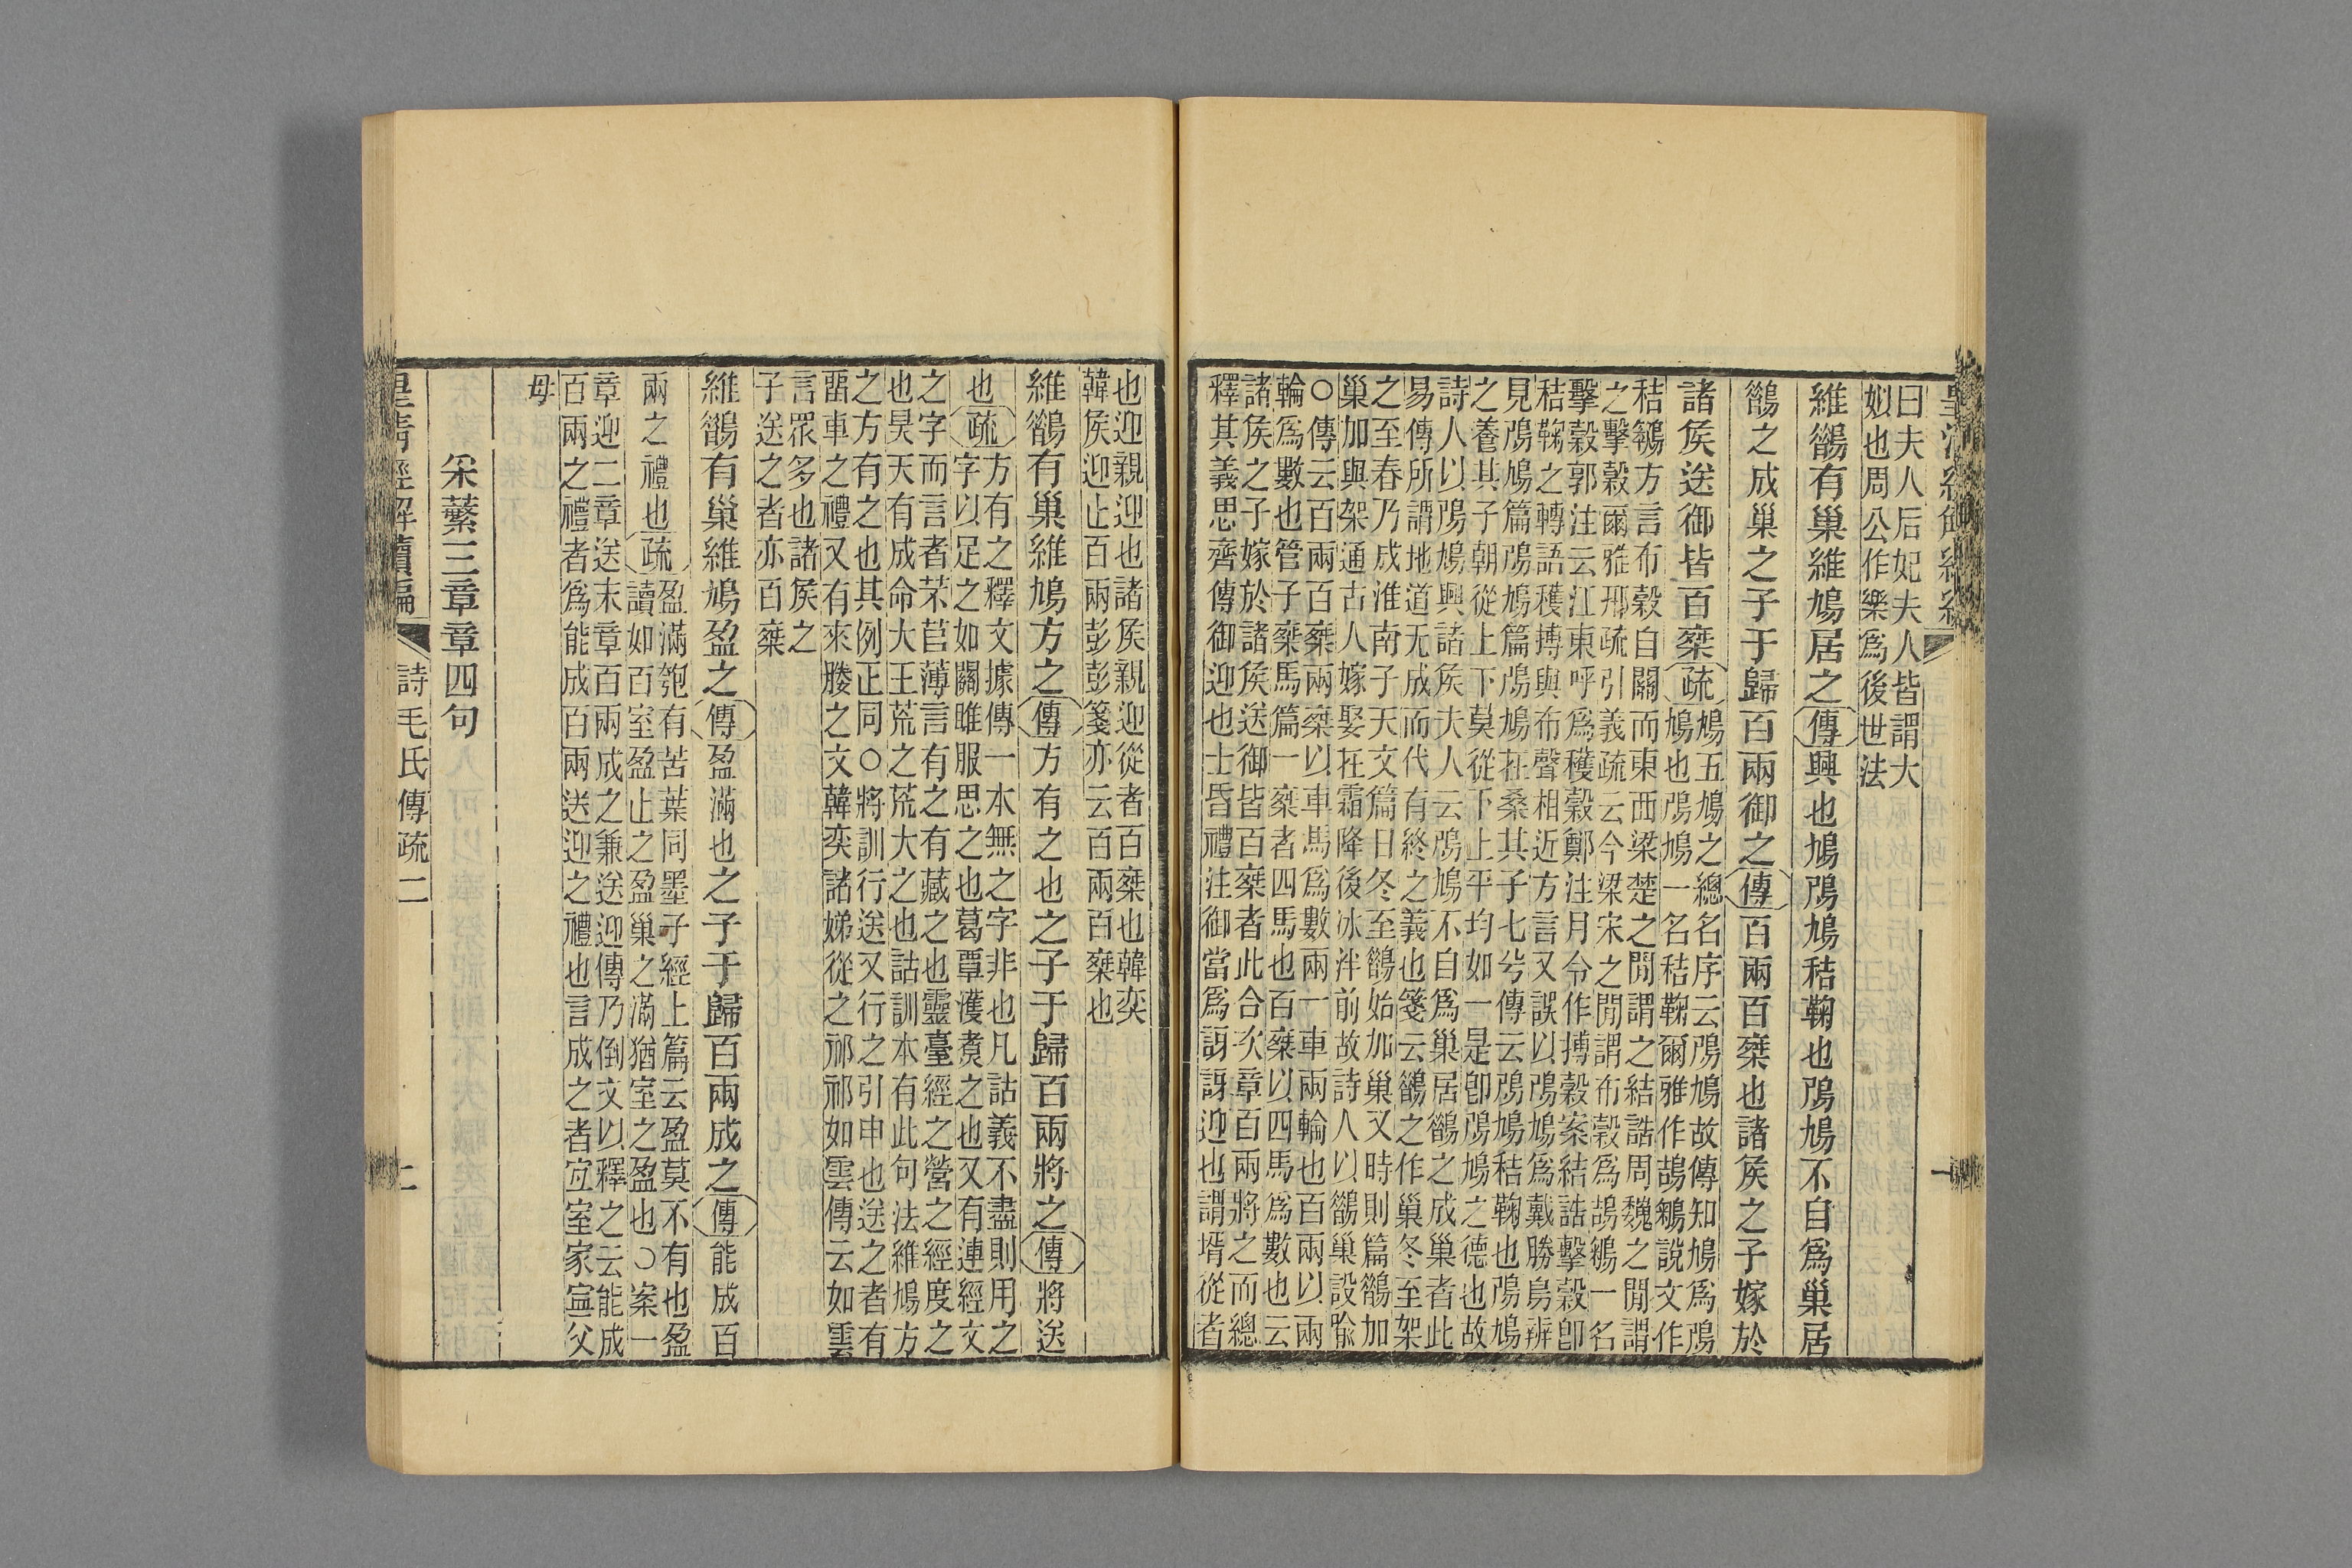 曰夫人后妃夫人皆謂大
姒也周公作樂爲後世法
維鵲有巢維鳩居之傳興也鳩鳲鳩秸鞠也鳲鳩不自爲巢居
鵲之成巢之子于歸百兩御之傳百兩百椉也諸侯之子嫁於
諸侯送御皆百椉疏
鳩五鳩之總名序云鳲鳩故傳知鳩爲鳲
鳩也鳲鳩一名秸鞠爾雅作鴶鵴說文作
秸鵴方言布穀自關而東西梁楚之閒謂之結誥周魏之閒謂
之擊穀爾雅邢疏引義疏云今梁宋之閒謂布穀爲鴶鵴一名
擊穀郭注云江東呼爲穫穀鄭注月令作搏穀案結誥擊穀卽
秸鞠之轉語穫搏與布聲相近方言又誤以鳲鳩爲戴勝鳥辨
見鳲鳩篇鳲鳩篇鳲鳩在桑其子七兮傳云鳲鳩秸鞠也鳲鳩
之養其子朝從上下莫從下上平均如一是卽鳲鳩之德也故
詩人以鳲鳩興諸侯夫人云鳲鳩不自爲巢居鵲之成巢者此
易傳所謂地道无成而代有終之義也箋云鵲之作巢冬至架
之至春乃成淮南子天文篇日冬至鵲始加巢又時則篇鵲加
巢加與架通古人嫁娶在霜降後冰泮前故詩人以鵲巢設喩
○傳云百兩百椉兩椉以車馬爲數兩一車兩輪也百兩以兩
輪爲數也管子椉馬篇一椉者四馬也百椉以四馬爲數也云
諸侯之子嫁於諸侯送御皆百椉者此合次章百兩將之而總
釋其義思齊傳御迎也士昏禮注御當爲訝訝迎也謂壻從者
也迎親迎也諸侯親迎從者百椉也韓奕
韓侯迎止百兩彭彭箋亦云百兩百椉也
維鵲有巢維鳩方之傳方有之也之子于歸百兩將之傳將送
也疏
方有之釋文據傳一本無之字非也凡詁義不盡則用之
字以足之如關雎服思之也葛覃濩煑之也又有連經文
之字而言者芣苢薄言有之有藏之也靈臺經之營之經度之
也昊天有成命大王荒之荒大之也詁訓本有此句法維鳩方
之方有之也其例正同○將訓行送又行之引申也送之者有
畱車之禮又有來媵之文韓奕諸娣從之祁祁如雲傳云如雲
言眾多也諸侯之
子送之者亦百椉
維鵲有巢維鳩盈之傳盈滿也之子于歸百兩成之傳能成百
兩之禮也疏
盈滿匏有苦葉同墨子經上篇云盈莫不有也盈
讀如百室盈止之盈巢之滿猶室之盈也○案一
章迎二章送末章百兩成之兼送迎傳乃倒文以釋之云能成
百兩之禮者爲能成百兩送迎之禮也言成之者宐室家寍父
母
采蘩三章章四句
皇淸經解續編
詩毛氏傳疏二
二
一